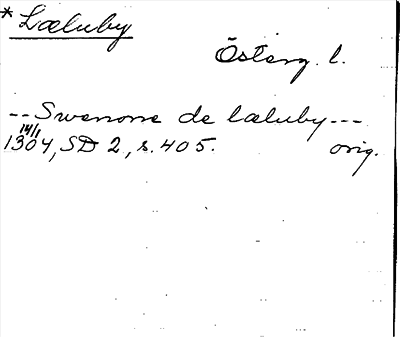 * Læluby
Österg. l.
-- Swenone de læluby ---
14/1
1304, SD 2, s. 405. orig.